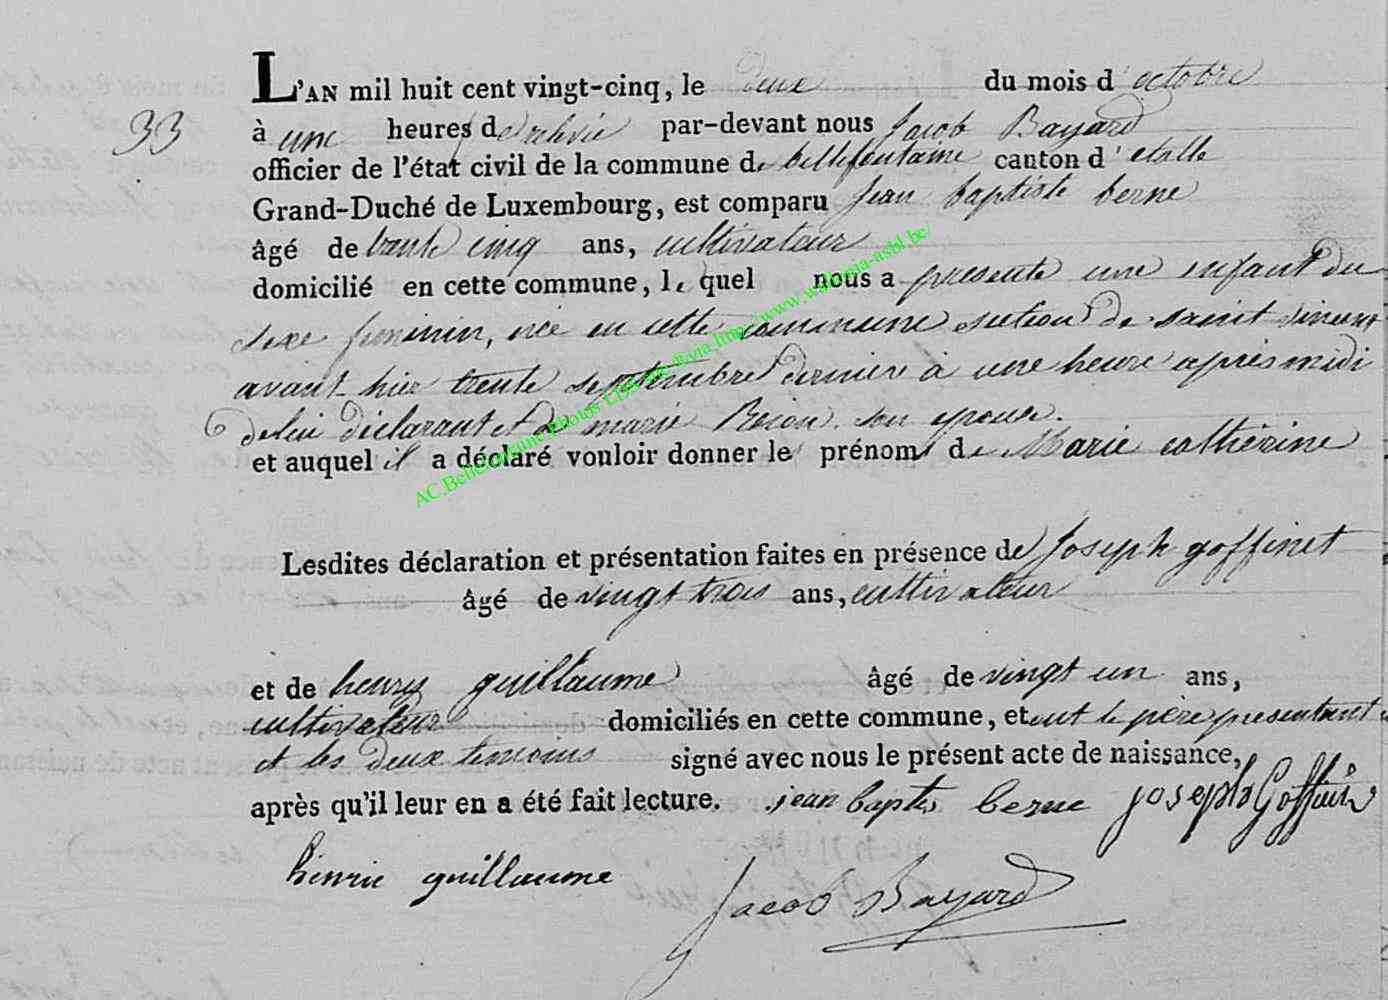 L'AN mil huit cent vingt-cinq, le deux du mois d'octobre
33
à une heures de relevée par-devant nous Jacob Bayard
officier de l'état civil de la commune de bellefontaine canton d'etalle
Grand-Duché de Luxembourg, est comparu jean baptiste berne
âgé de trente cinq ans, cultivateur
domicilié en cette commune, le quel nous a presenté une enfant du
sexe feminin, née en cette commune section de saint vincent
avant hier trente septembre dernier à une heure après midi
de lui déclarant et de marie son epouse.
et auquel il a déclaré vouloir donner le prénom de Marie catherine
Lesdites déclaration et présentation faites en présence de joseph goffinet
âgé de vingt trois ans, cultivateur
et de henry guillaume âgé de vingt un ans,
cultivateur domiciliés en cette commune, et ont le père presentant
et les deux temoins signé avec nous le présent acte de naissance,
après qu'il leur en a été fait lecture. jean baptis berne joseph Goffinet
henrie guillaume
Jacob Bayard
AC.Bellefontaine Photos via http://www.wallonia-asbl.be/